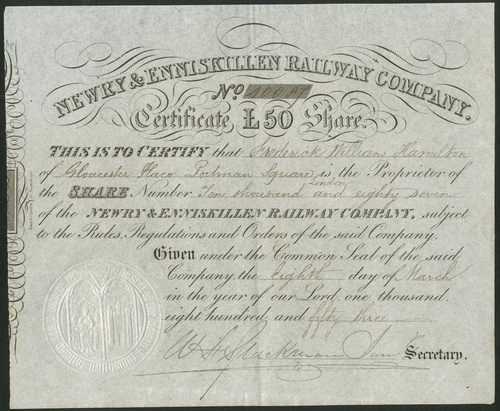 NEWRY & ENNISKILLEN RAILWAY COMPANY.
No 10087
Certificate £50 Share.
THIS IS TO CERTIFY that Frederick William Hamilton
of Gloucester Place Portman Square, is the Proprietor of
London
the SHARE Number Ten thousand and eighty seven
of the NEWRY & ENNISKILLEN RAILWAY COMPANY, subject
to the Rules, Regulations and Orders of the said Company.
Given under the Common Seal of the said
Company, the eighth day of March
in the year of our Lord, one thousand
eight hundred and fifty three
Secretary.